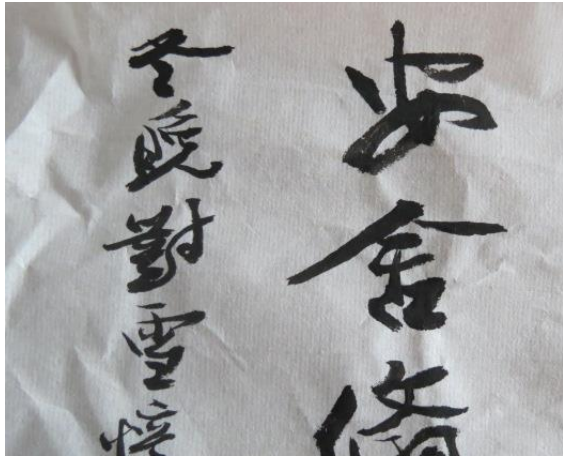 安舍翛
冬晚對雪憶